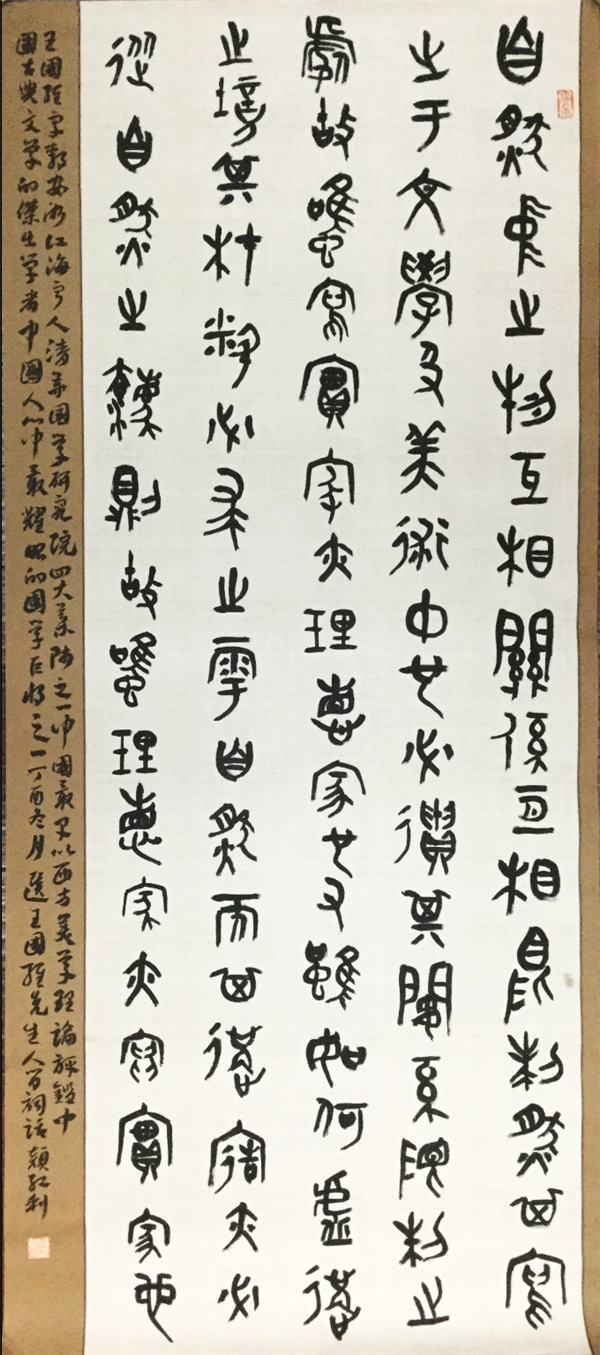 自然中之物互相關係互相限制然其寫
之于文學及美術中也必遺其關系限制之
處故雖寫實家亦理想家也又雖如何虛構
之境其材料必求之于自然而其構造亦必
從自然之灋則故雖理想家亦寫實家也
王國維字静安浙江海宁人清華国学研究院四大導師之一中國最早以西方美学理論評鑑中
國古典文学的傑出学者中國人心中最耀眼的國学巨將之一丁酉冬月選王國維先生人间詞話顏紅利